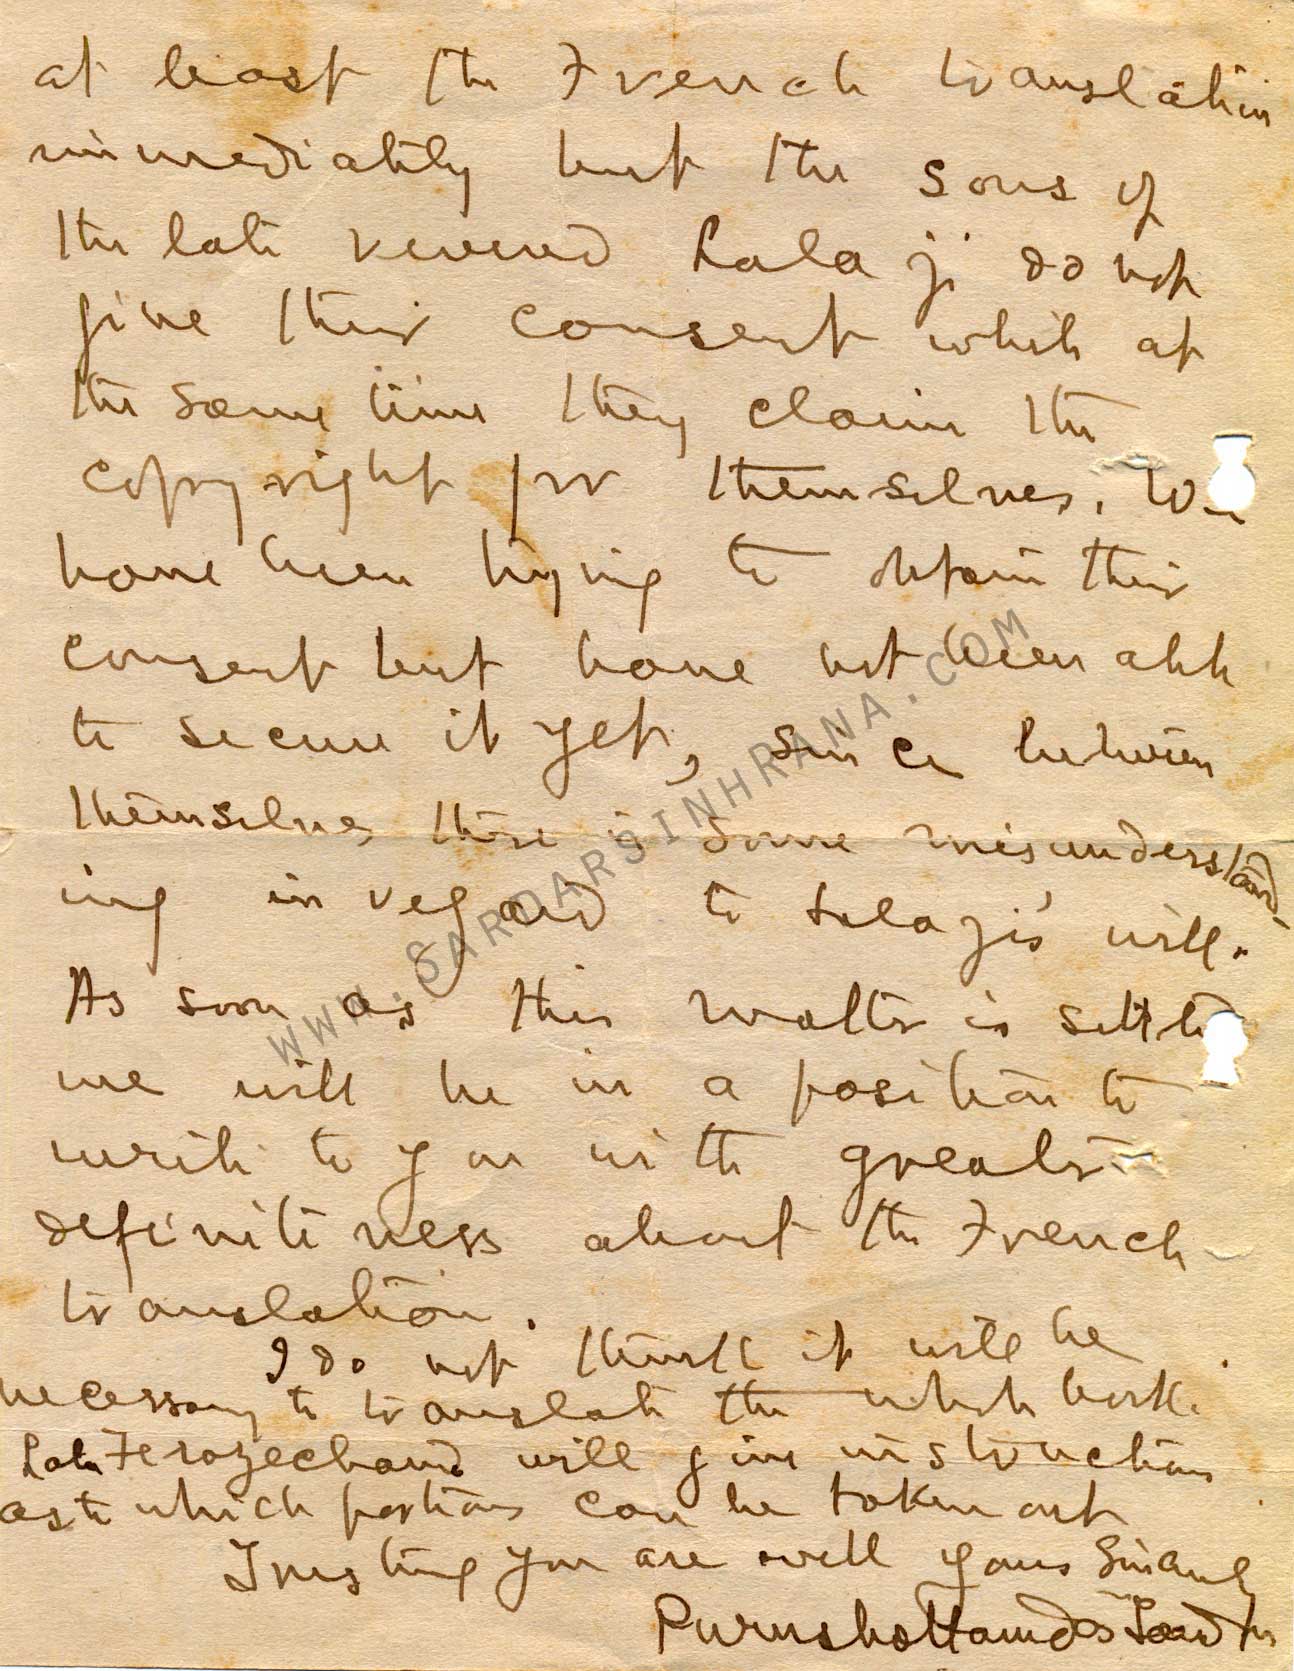 at least the French translation
immediately but the sons of
the late revered Lala ji do not
give their consent which at
the same time they claim the
copyright for themselves. We
have been trying to obtain their
consent but have not been able
to secure it yet, since between
themselves there is some misunderstand-
ing in regard to Lalaji's will.
As soon as this matter is settled
we will be in a position to
write to you with greater
definiteness about the French
translation.
I do not think it will be
necessary to translate the whole book.
Lala Ferozechand will give instructions
as to which portions can be taken out
Trusting you are well yours Sincerely
Purushottamdas Tandon
WWW.SARDARSINHRANA.COM